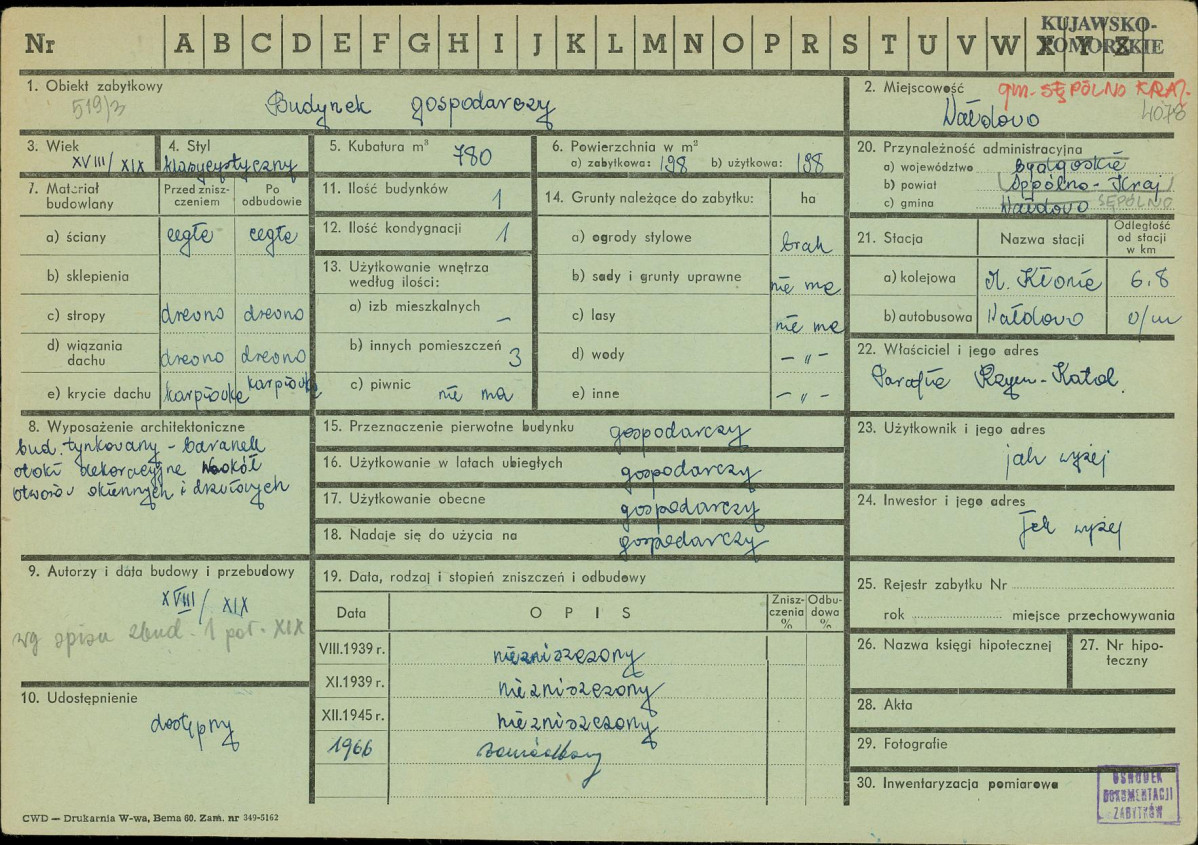 Nr A B C D E F G H I J K L M N O P R S T U V W X Y Z
KUJAWSKO-
POMORSKIE
1. Obiekt zabytkowy
519/3
Budynek gospodarczy
2. Miejscowość
gm. SĘPÓLNO KRAJ.
Wałdowo
4078
3. Wiek
XVIII/XIX
4. Styl
klasycystyczny
5. Kubatura m³
780
6. Powierzchnia w m²
a) zabytkowa: 198 b) użytkowa: 198
20. Przynależność administracyjna
a) województwo bydgoskie
b) powiat Sępólno-Kraj
c) gmina Wałdowo SĘPÓLNO
7. Materiał budowlany
Przed zniszczeniem
Po odbudowie
a) ściany cegła cegła
b) sklepienia
c) stropy drewno drewno
d) wiązania dachu drewno drewno
e) krycie dachu karpiówka karpiówka
11. Ilość budynków 1
12. Ilość kondygnacji 1
13. Użytkowanie wnętrza
według ilości:
a) izb mieszkalnych –
b) innych pomieszczeń 3
c) piwnic nie ma
14. Grunty należące do zabytku: ha
a) ogrody stylowe brak
b) sady i grunty uprawne nie ma
c) lasy nie ma
d) wody – „ –
e) inne – „ –
21. Stacja
Nazwa stacji
Odległość
od stacji
w km
a) kolejowa M. Kłonia 6.8
b) autobusowa Wałdowo o/m
22. Właściciel i jego adres
Parafia Rzym-Katol.
8. Wyposażenie architektoniczne
bud. tynkowany - baranek
otoki dekoracyjne wokół
otworów okiennych i drzwiowych
15. Przeznaczenie pierwotne budynku gospodarczy
16. Użytkowanie w latach ubiegłych gospodarczy
17. Użytkowanie obecne gospodarczy
18. Nadaje się do użycia na gospodarczy
23. Użytkownik i jego adres
jak wyżej
24. Inwestor i jego adres
jak wyżej
9. Autorzy i data budowy i przebudowy
XVIII/XIX
wg spisu zbud. 1 poł. XIX
10. Udostępnienie
dostępny
19. Data, rodzaj i stopień zniszczeń i odbudowy
Data
OPIS
Zniszczenia %
Odbudowa %
VIII.1939 r. niezniszczony
XI.1939 r. niezniszczony
XII.1945 r. niezniszczony
1966
25. Rejestr zabytku Nr
rok miejsce przechowywania
26. Nazwa księgi hipotecznej
27. Nr hipoteczny
28. Akta
29. Fotografie
30. Inwentaryzacja pomiarowa
OŚRODEK
DOKUMENTACJI
ZABYTKÓW
CWD — Drukarnia W-wa, Bema 60. Zam. nr 349-5162